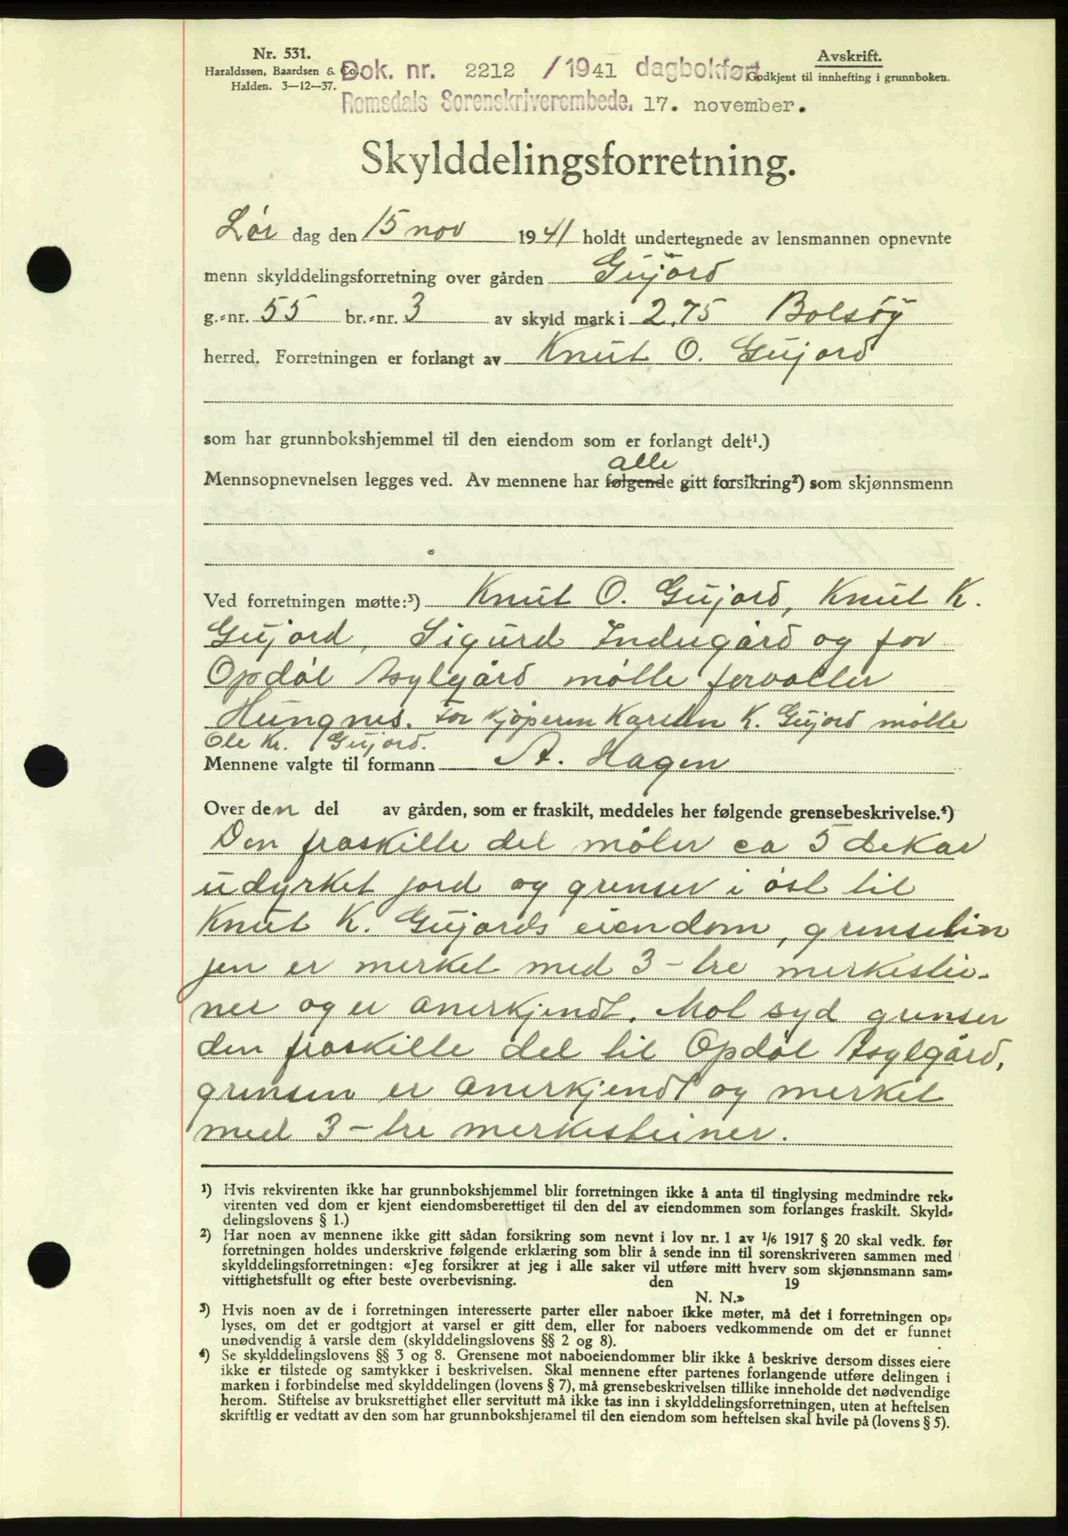 Nr. 531.
Haraldssen, Baardsen & Co.,
Halden. 3—12—37.
Dok. nr. 2212 /1941 dagbokført
Romsdals Sorenskriverembede, 17. november.
Avskrift.
Godkjent til innhefting i grunnboken.
Skylddelingsforretning.
Lør dag den 15 nov 1941 holdt undertegnede av lensmannen opnevnte
menn skylddelingsforretning over gården Gujord
g.-nr. 55 br.-nr. 3 av skyld mark i 2.75 Bolsøy
herred. Forretningen er forlangt av Knut O. Gujord
som har grunnbokshjemmel til den eiendom som er forlangt delt¹.)
alle
Mennsopnevnelsen legges ved. Av mennene har følgende gitt forsikring²) som skjønnsmenn
Ved forretningen møtte:³) Knut O. Gujord, Knut K.
Gujord, Sigurd Indregård og for
Opdøl Asylgård møtte forvalter
Hungnes. For kjøperen Karsten K. Gujord møtte
Ole Kr. Gujord.
Mennene valgte til formann A. Hagen
Over den del av gården, som er fraskilt, meddeles her følgende grensebeskrivelse.⁴)
Den fraskilte del måler ca 5 dekar
udyrket jord og grenser i øst til
Knut K. Gujords eiendom, grenselin
jen er merket med 3 - tre merkestei-
ner og er anerkjendt. Mot syd grenser
den fraskilte del til Opdøl Asylgård,
grensen er anerkjendt og merket
med 3 - tre merkesteiner.
¹) Hvis rekvirenten ikke har grunnbokshjemmel blir forretningen ikke å anta til tinglysing medmindre rek-
virenten ved dom er kjent eiendomsberettiget til den del av eiendommen som forlanges fraskilt. Skyld-
delingslovens § 1.)
²) Har noen av mennene ikke gitt sådan forsikring som nevnt i lov nr. 1 av 1/6 1917 § 20 skal vedk. før
forretningen holdes underskrive følgende erklæring som blir å sende inn til sorenskriveren sammen med
skylddelingsforretningen: «Jeg forsikrer at jeg i alle saker vil utføre mitt hverv som skjønnsmann sam-
vittighetsfullt og efter beste overbevisning. den 19
N. N.»
³) Hvis noen av de i forretningen interesserte parter eller naboer ikke møter, må det i forretningen op-
lyses, om det er godtgjort at varsel er gitt dem, eller for naboers vedkommende om det er funnet
unødvendig å varsle dem (skylddelingslovens §§ 2 og 8).
⁴) Se skylddelingslovens §§ 3 og 8. Grensene mot naboeiendommer blir ikke å beskrive dersom disses eiere
ikke er tilstede og samtykker i beskrivelsen. Skal mennene efter partenes forlangende utføre delingen i
marken i forbindelse med skylddelingen (lovens § 7), må grensebeskrivelsen tillike inneholde det nødvendige
herom. Stiftelse av bruksrettighet eller servitutt må ikke tas inn i skylddelingsforretningen, uten at heftelsen
skriftlig er vedtatt av den som har grunnbokshjemmel til den eiendom som heftelsen skal hvile på (lovens § 5).